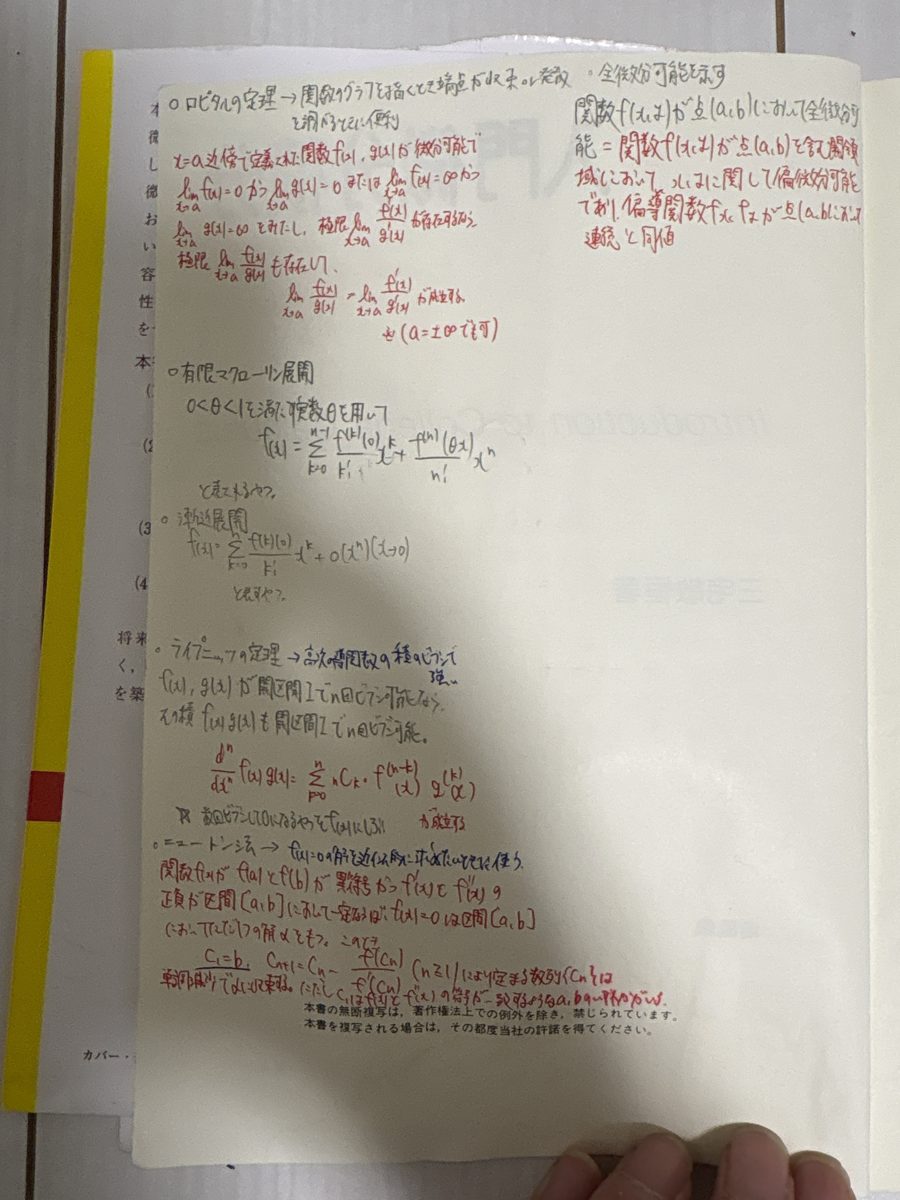 ○ロピタルの定理→関数のグラフを描くとき端点が収束or発散
を調べるときに便利
x=a近傍で定義された関数f(x), g(x)が微分可能で
lim x→a f(x)=0 かつ lim x→a g(x)=0 または lim x→a f(x)=∞ かつ
lim x→a g(x)=∞ をみたし、極限 lim x→a f'(x)/g'(x) が存在するなら、
極限 lim x→a f(x)/g(x) も存在して、
lim x→a f(x)/g(x) = lim x→a f'(x)/g'(x) が成立する
(a=±∞でも可)
○有限マクローリン展開
0<θ<1を満たす実数θを用いて
f(x) = Σ k=0 n-1 f^(k)(0)/k! x^k + f^(n)(θx)/n! x^n
と表されるやつ。
○漸近展開
f(x)= Σ k=0 n f(k)(0)/k! x^k + o(x^n)(x→0)
と表すやつ。
○ライプニッツの定理→高次の導関数の積のビブンで
強い
f(x), g(x)が開区間Iでn回ビブン可能なら、
その積f(x)g(x)も開区間Iでn回ビブン可能。
d^n/dx^n f(x)g(x)= Σ k=0 n nCk・f^(n-k)(x) g^(k)(x)
数回ビブンして0になるやつを
が成立する
○ニュートン法→f(x)=0の解を近似的に求めたいときに使う。
関数f(x)がf(a)とf(b)が異符号かつf'(x)とf''(x)の
正負が区間[a,b]において一定ならば、f(x)=0は区間[a,b]
においてただ1つの解αをもつ。このとき
C1=b, Cn+1=Cn- f(Cn)/f'(Cn) (n≧1)により定まる数列{Cn}は
単調減少でαに収束する。ただしC1はf(x)とf''(x)の符号が一致するようなa,b
○全微分可能を示す
関数f(x,y)が点(a,b)において全微分可
能=関数f(x,y)が点(a,b)を含む開領
域Dにおいてx,yに関して偏微分可能
であり偏導関数fx, fyが点(a,b)において
連続と同値
本書の無断複写は，著作権法上での例外を除き，禁じられています。
本書を複写される場合は，その都度当社の許諾を得てください。
本
微
し
微
お
い
容
性
を
本
(2
(3
(4
将来
く，
を築
カバー・